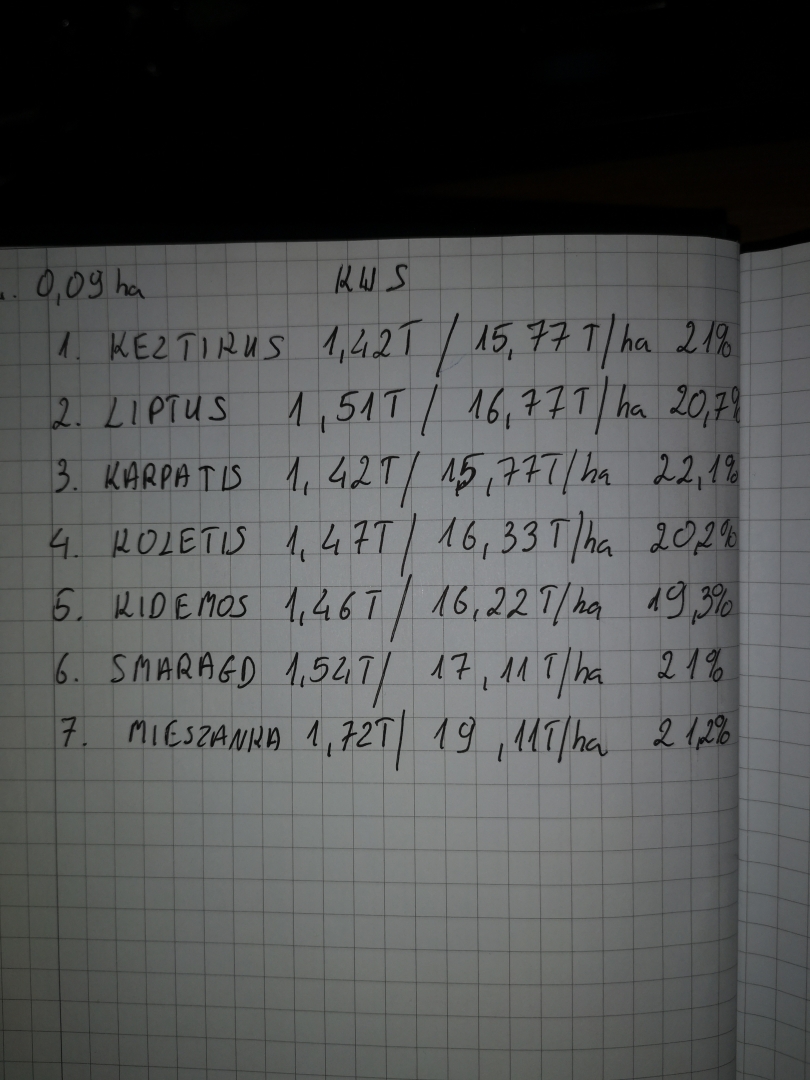 0,09 ha KWS
1. KEZTIRUS 1,42T / 15,77 T/ha 21%
2. LIPTUS 1,51T / 16,77T/ha 20,7%
3. KARPATIS 1,42T / 15,77T/ha 22,1%
4. KOLETIS 1,47T / 16,33T/ha 20,2%
5. KIDEMOS 1,46T / 16,22T/ha 19,3%
6. SMARAGD 1,54T / 17,11T/ha 21%
7. MIESZANKA 1,72T / 19,11T/ha 21,2%